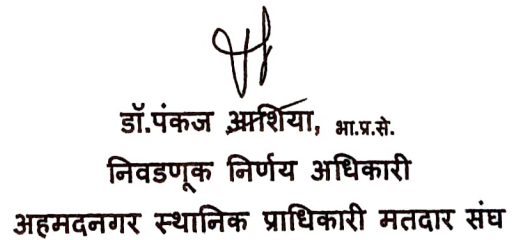 डॉ.पंकज आशिया, भा.प्र.से.
निवडणूक निर्णय अधिकारी
अहमदनगर स्थानिक प्राधिकारी मतदार संघ